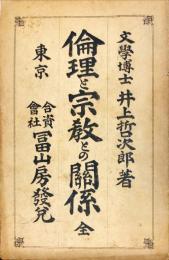 文學博士 井上哲次郎著
倫理と宗教との關係 全
東京 合資會社 冨山房發兌